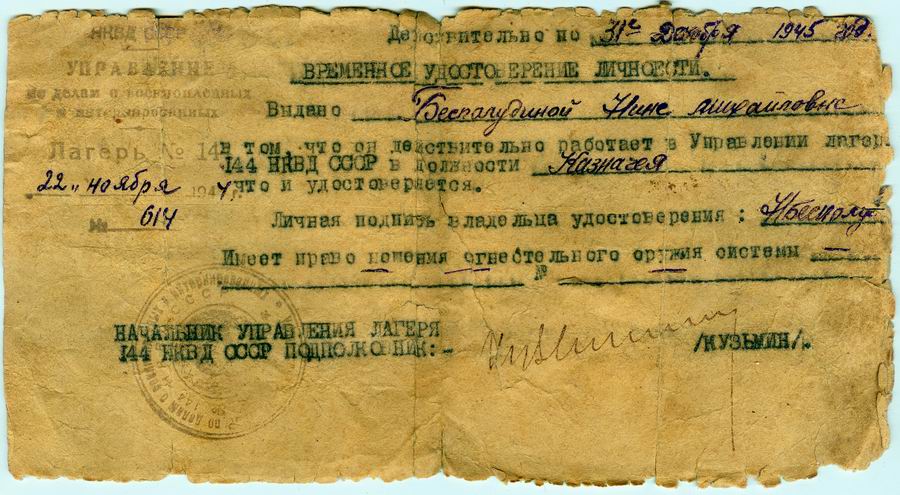 НКВД СССР
УПРАВЛЕНИЕ
по делам о военнопленных
и интернированных
Лагерь № 144
22 " ноября 194 4
№ 614
Действительно по 31го Декабря 1945
ВРЕМЕННОЕ УДОСТОВЕРЕНИЕ ЛИЧНОСТИ.
Выдано Беспагудиной Нине михайловне
в том, что он действительно работает в Управлении лагер.
144 НКВД СССР в должности Казначея
что и удостоверяется.
Личная подпись владельца удостоверения :
Имеет право ношения огнестельного оружия системы —
№
НАЧАЛЬНИК УПРАВЛЕНИЯ ЛАГЕРЯ
144 НКВД СССР ПОДПОЛКОВНИК:- /КУЗЬМИН/.